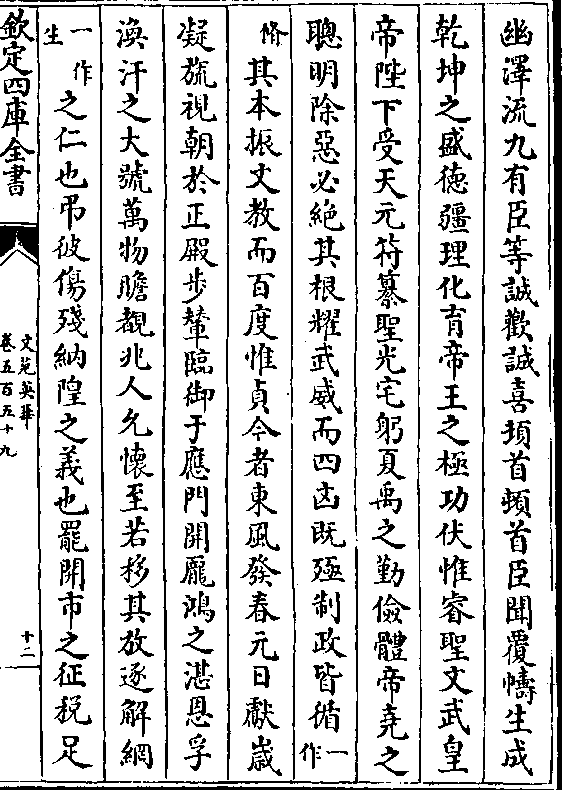 幽澤流九有臣等誠歡誠喜頓首頓首臣聞覆幬生成
乾坤之盛徳疆理化育帝王之極功伏惟睿聖文武皇
帝陛下受天元符纂聖光宅躬夏禹之勤儉體帝堯之
聰明除惡必絶其根耀武威而四凶既殛制政皆循一作
脩其本振文教而百度惟貞今者東風發春元日獻嵗
凝旒視朝於正殿步輦臨御于應門開龎鴻之湛恩孚
渙汗之大號萬物瞻覩兆人允懷至若移其放逐解網
一作生之仁也弔彼傷殘納隍之義也罷關市之征税足
欽定四庫全書
文苑英華
卷五百五十九
十二